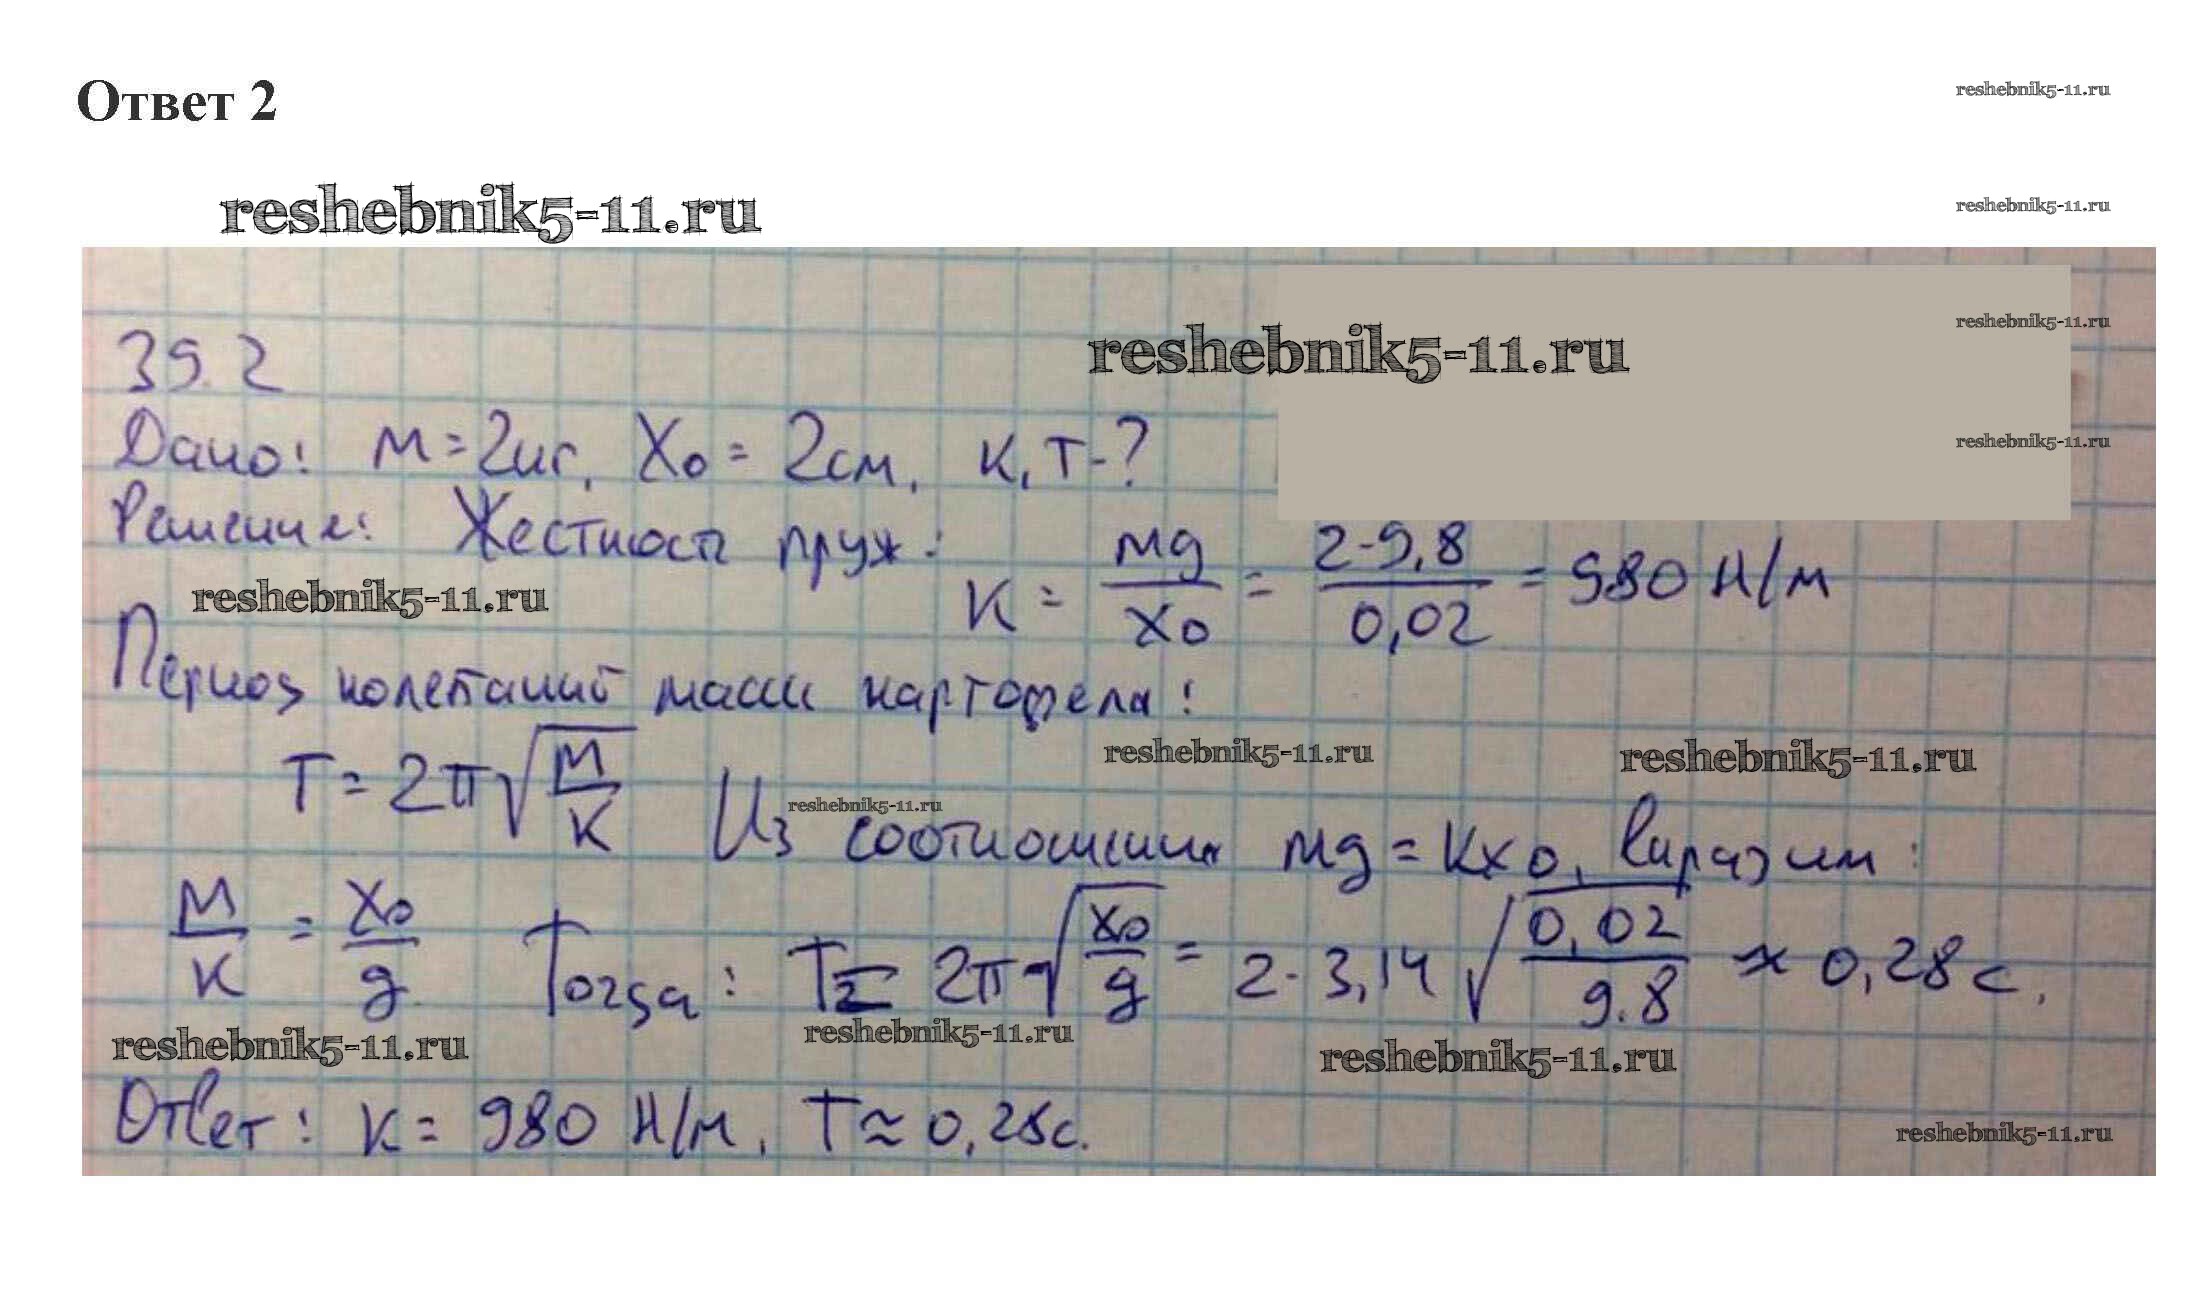 Ответ 2
reshebnik5-11.ru
reshebnik5-11.ru
reshebnik5-11.ru
reshebnik5-11.ru
reshebnik5-11.ru
39.2
reshebnik5-11.ru
Дано: m = 2кг, x₀ = 2см, к, T - ?
Решение: Жесткость пруж.:
k = mg/x₀ = 2·9,8/0,02 = 980 Н/м
reshebnik5-11.ru
Период колебаний массы картофеля:
reshebnik5-11.ru
reshebnik5-11.ru
reshebnik5-11.ru
T = 2π√(m/k) Из соотношения mg = kx₀, выразим:
m/k = x₀/g Тогда: T = 2π√(x₀/g) = 2·3,14√(0,02/9.8) ≈ 0,28 с.
reshebnik5-11.ru
reshebnik5-11.ru
reshebnik5-11.ru
Ответ: k = 980 Н/м, T ≈ 0,28с.
reshebnik5-11.ru